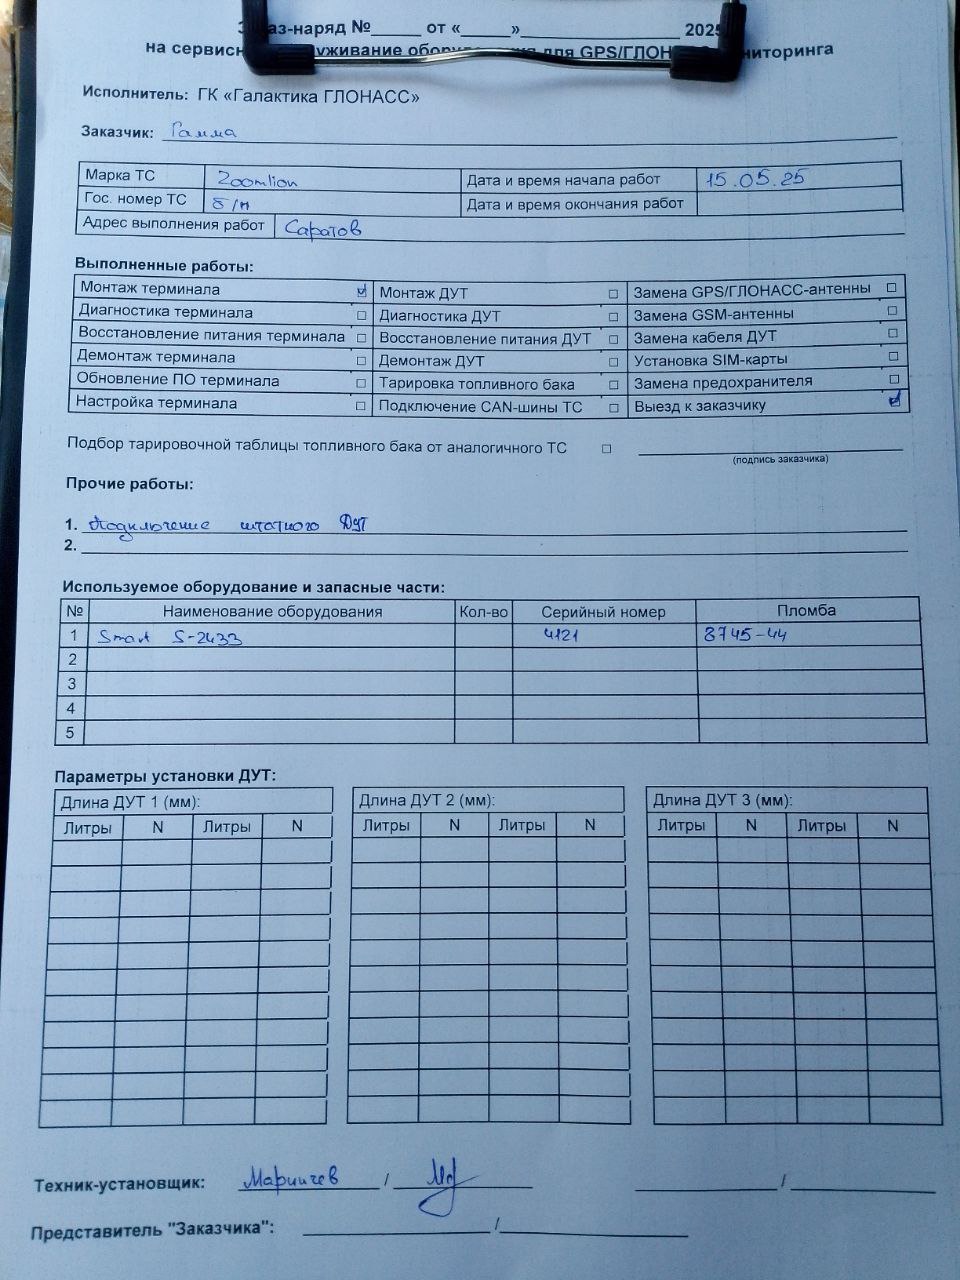 Заказ-наряд №_____ от «_____»________________ 2025
на сервисное обслуживание оборудования для GPS/ГЛОНАСС мониторинга
Исполнитель: ГК «Галактика ГЛОНАСС»
Заказчик: Гамма
Марка ТС Zoomlion Дата и время начала работ 15.05.25
Гос. номер ТС б/н Дата и время окончания работ
Адрес выполнения работ Саратов
Выполненные работы:
Монтаж терминала ☑ Монтаж ДУТ □ Замена GPS/ГЛОНАСС-антенны □
Диагностика терминала □ Диагностика ДУТ □ Замена GSM-антенны □
Восстановление питания терминала □ Восстановление питания ДУТ □ Замена кабеля ДУТ □
Демонтаж терминала □ Демонтаж ДУТ □ Установка SIM-карты □
Обновление ПО терминала □ Тарировка топливного бака □ Замена предохранителя □
Настройка терминала □ Подключение CAN-шины ТС □ Выезд к заказчику ☑
Подбор тарировочной таблицы топливного бака от аналогичного ТС □
(подпись заказчика)
Прочие работы:
1. Подключение штатного ДУТ
2.
Используемое оборудование и запасные части:
№ Наименование оборудования Кол-во Серийный номер Пломба
1 Smart S-2433 4121 8745-44
2
3
4
5
Параметры установки ДУТ:
Длина ДУТ 1 (мм): Длина ДУТ 2 (мм): Длина ДУТ 3 (мм):
Литры N Литры N Литры N Литры N Литры N Литры N
Техник-установщик: Маринчев /
Представитель "Заказчика": /